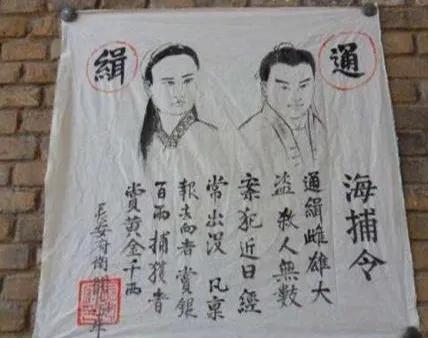 通
緝
海捕令
通緝雌雄大
盜殺人無數
案犯近日經
常出沒 凡稟
報去向者賞銀
百兩捕獲者
賞黃金千兩
長安府衙